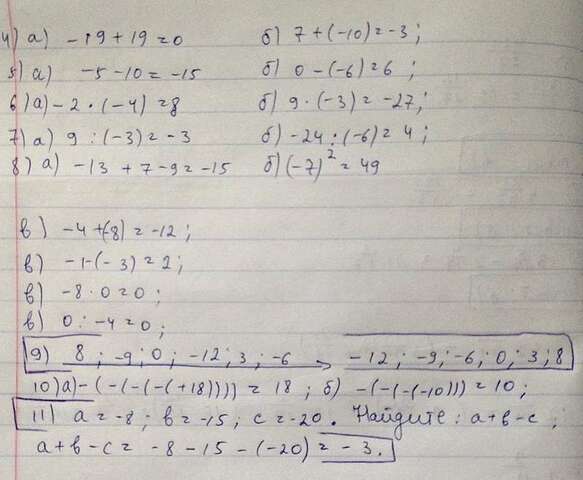 4) а) -19 + 19 = 0 б) 7 + (-10) = -3;
5) а) -5 - 10 = -15 б) 0 - (-6) = 6;
6) а) -2 · (-4) = 8 б) 9 · (-3) = -27;
7) а) 9 : (-3) = -3 б) -24 : (-6) = 4;
8) а) -13 + 7 - 9 = -15 б) (-7)² = 49
в) -4 + (-8) = -12;
в) -1 - (-3) = 2;
в) -8 · 0 = 0;
в) 0 : -4 = 0;
9) 8; -9; 0; -12; 3; -6 → -12; -9; -6; 0; 3; 8
10) а) -(-(-(-(+18)))) = 18; б) -(-(-(-10))) = 10;
11) а = -8; в = -15; с = -20. Найдите: а + в - с;
а + в - с = -8 - 15 - (-20) = -3.